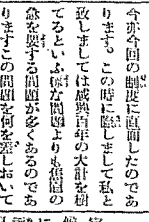 今亦今回の制度に直面したのであ
ります。この時に際しまして私と
致しましては咸興百年の大計を樹
てるといふ様な問題よりも焦眉の
急を要する問題が多くあるのであ
ります。この問題を何を差しおいて